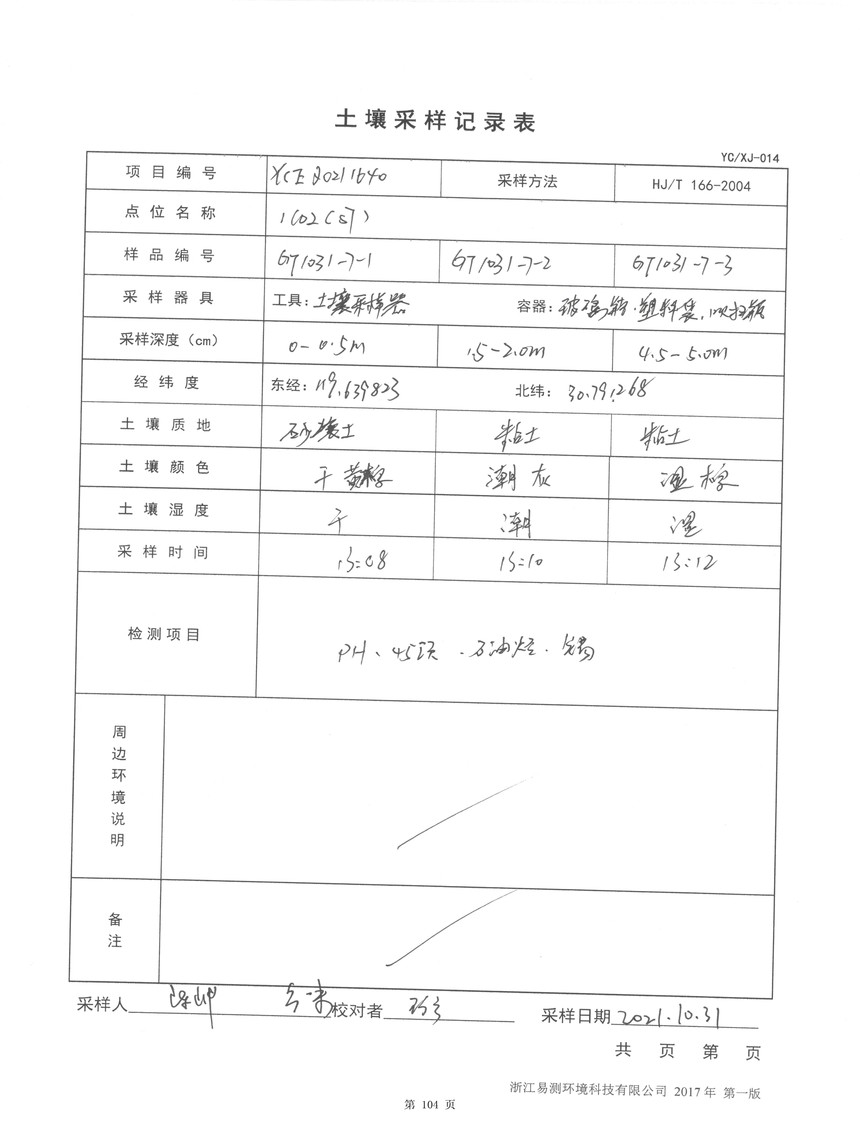 土壤采样记录表
YC/XJ-014
项目编号 YCE20211640 采样方法 HJ/T 166-2004
点位名称
样品编号 GT1031-7-1 GT1031-7-2 GT1031-7-3
采样器具 工具:土壤采样器 容器:玻璃瓶、塑料袋、吹扫瓶
采样深度(cm) 0-0.5m 1.5-2.0m 4.5-5.0m
经纬度 东经:119.639823 北纬:30.791268
土壤质地 砂壤土 粘土 粘土
土壤颜色 干 黄棕 潮 灰 湿 棕
土壤湿度 干 潮 湿
采样时间 15:08 15:10 15:12
检测项目 PH、45项、石油烃、锑
周边环境说明
备注
采样人 校对者 采样日期 2021.10.31
共 页 第 页
浙江易测环境科技有限公司 2017年 第一版
第 104 页